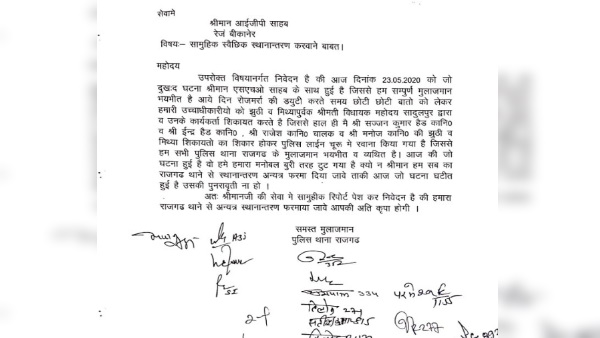 सेवामे
श्रीमान आईजीपी साहब
रेजं बीकानेर
विषयः– सामुहिक स्वैछिक स्थानान्तरण करवाने बाबत।
महोदय
उपरोक्त विषयानर्गत निवेदन है की आज दिनांक 23.05.2020 को जो
दुखःद घटना श्रीमान एसएचओ साहब के साथ हुई है जिससे हम सम्पुर्ण मुलाजमान
भयभीत है आये दिन रोजमर्रा की डयुटी करते समय छोटी छोटी बातो को लेकर
हमारी उच्चाधीकारीयो को झुठी व मिथ्यापुर्वक श्रीमती विधायक महोदय सादुलपुर द्वारा
व उनके कार्यकर्ता शिकायत करते है जिससे हाल ही मे श्री सज्जन कुमार हैड कानि०
व श्री ईन्द्र हैड कानि०, श्री राजेश कानि० चालक व श्री मनोज कानि० की झुठी व
मिथ्या शिकायतो का शिकार होकर पुलिस लाईन चूरू मे रवाना किया गया है जिससे
हम सभी पुलिस थाना राजगढ के मुलाजमान भयभीत व व्यथित है। आज की जो
घटना हुई है वो हमे हमारा मनोबल बुरी तरह टुट गया है क्यो न श्रीमान हम सब का
राजगढ थाने से स्थानान्तरण अन्यत्र फरमा दिया जावे ताकी आज जो घटना घटीत
हुई है उसकी पुनरावृती ना हो ।
अतः श्रीमानजी की सेवा मे सामुहीक रिपोर्ट पेश कर निवेदन है की हमारा
राजगढ थाने से अन्यत्र स्थानान्तरण फरमाया जावे आपकी अति कृपा होगी ।
समस्त मुलाजमान
पुलिस थाना राजगढ
334
271
515
1155
277